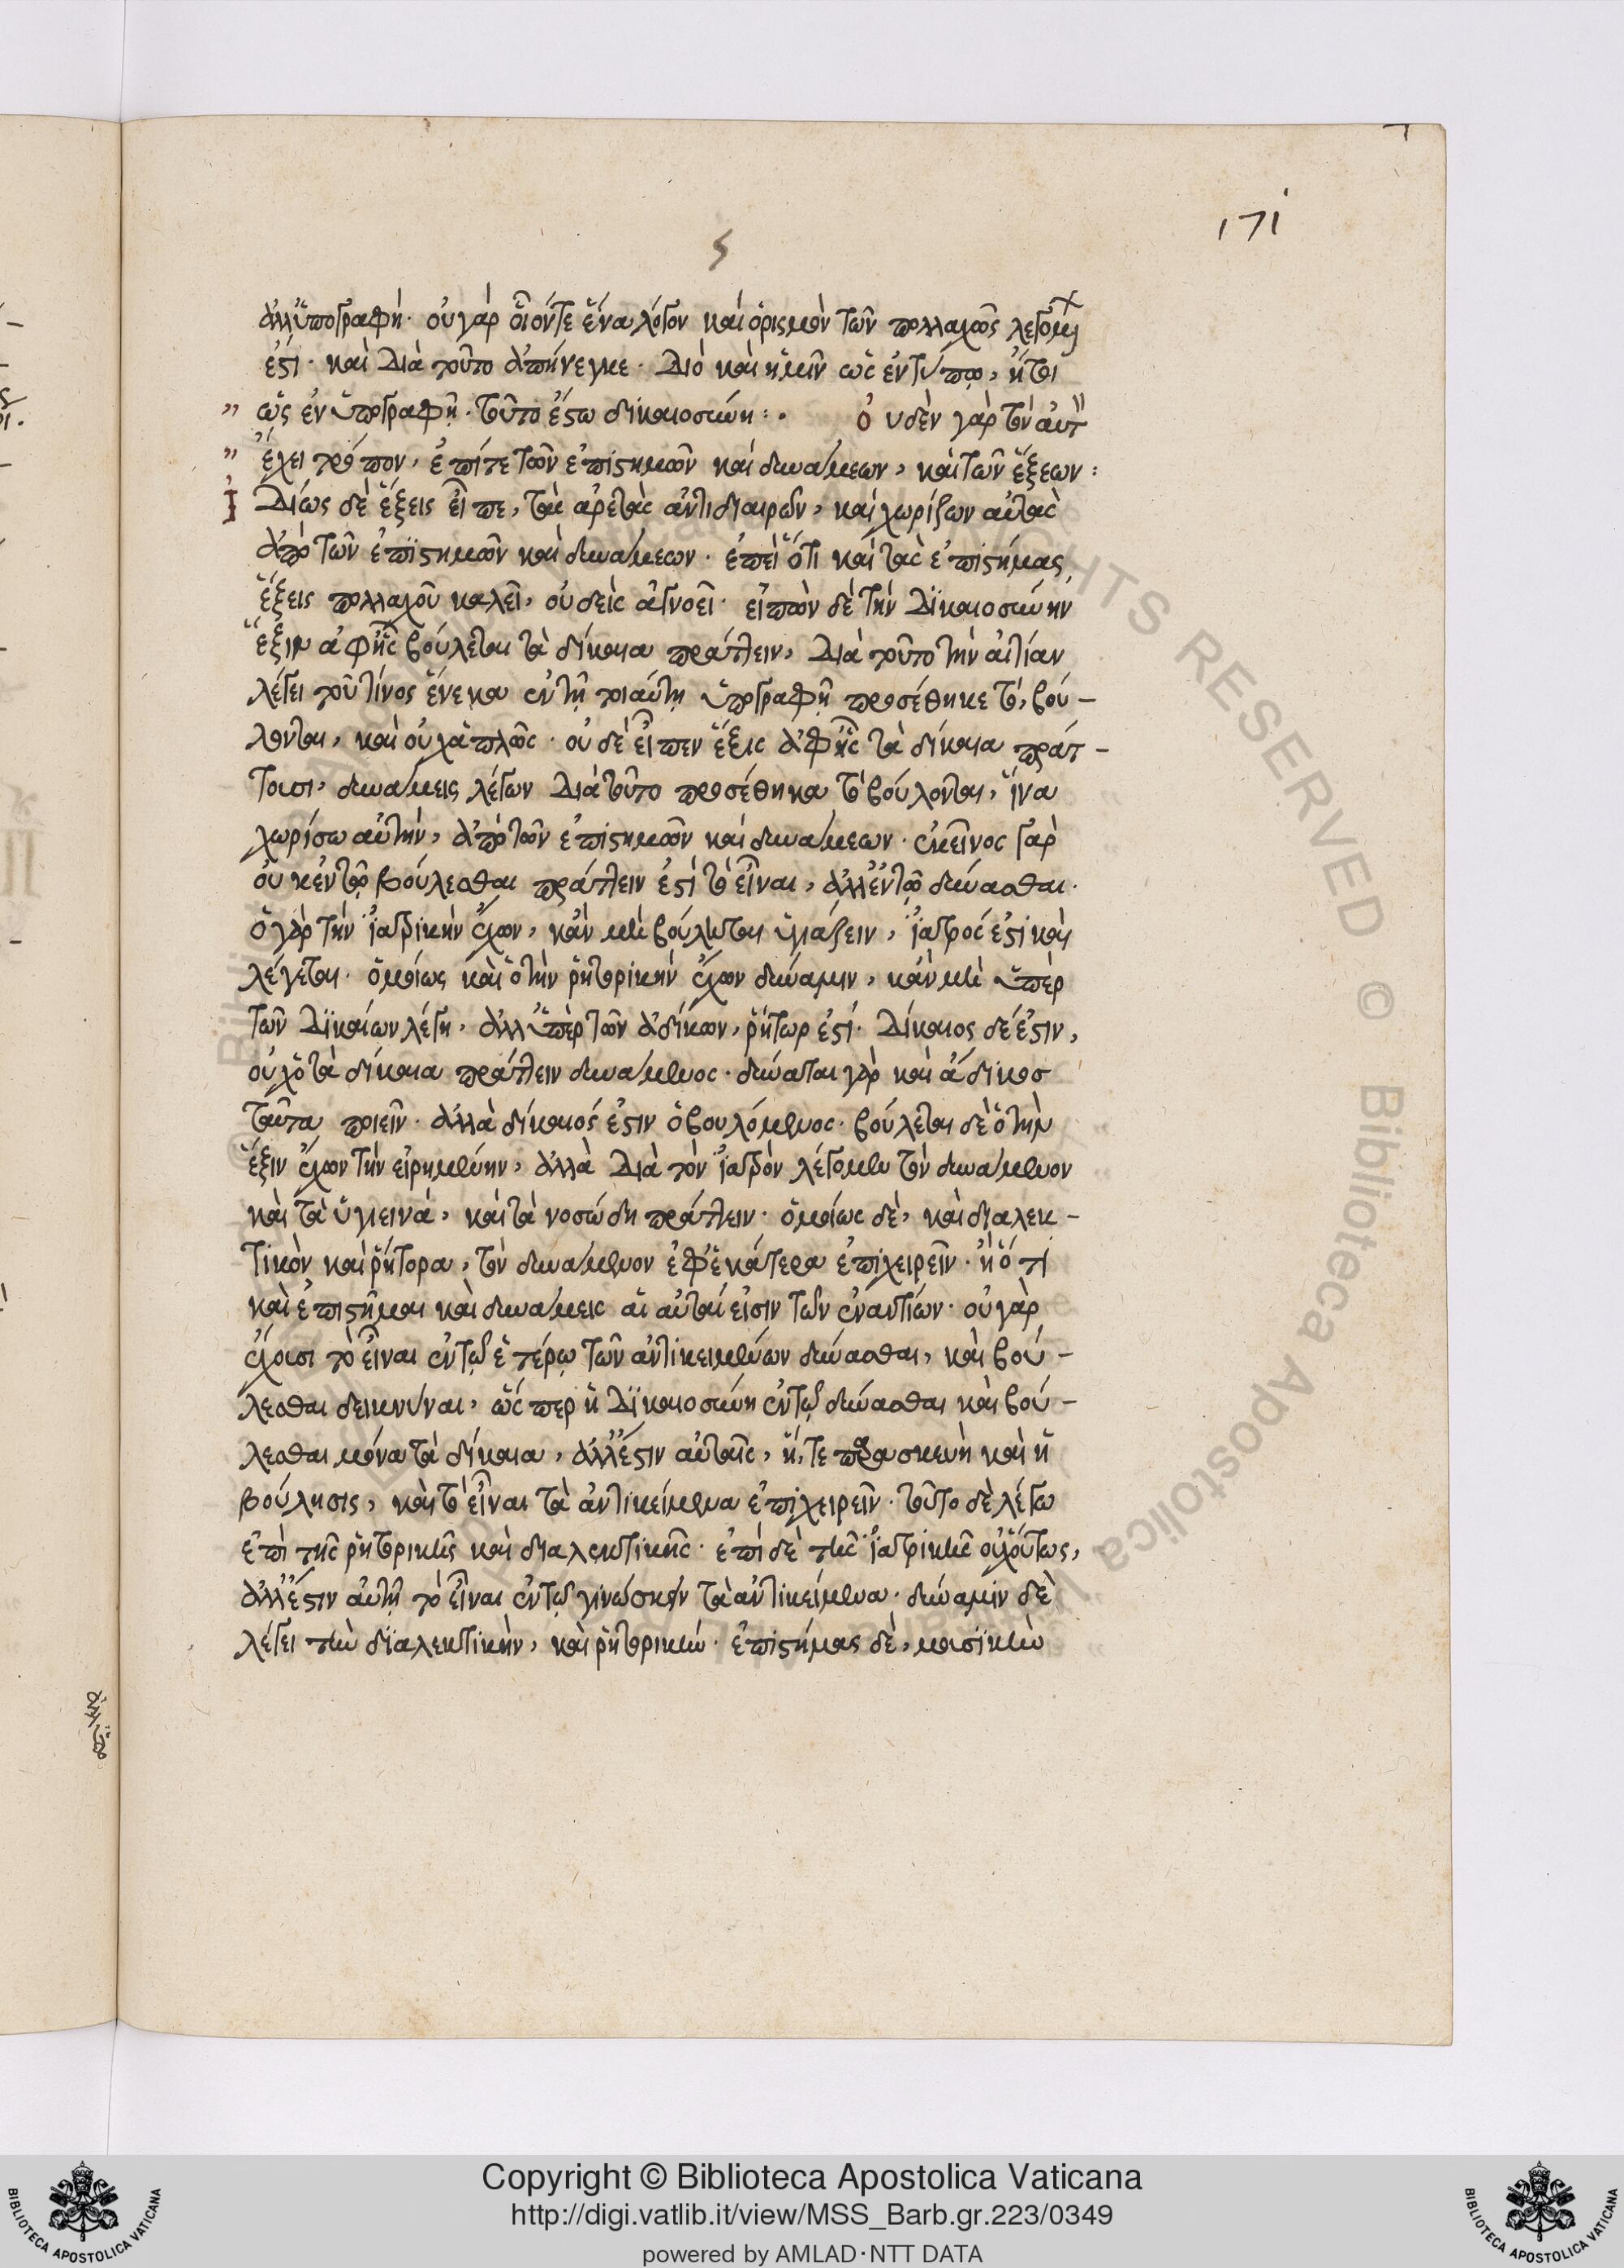 171
5
ἀλλ' ὑπογραφή. οὐ γὰρ οἷόντε ἕνα λόγον καὶ ὁρισμὸν τῶν πολλαχῶς λεγομ
ἐστί. καὶ διὰ τοῦτο ἀπήνεγκε. διὸ καὶ ἡμῖν ὡς ἐν τύπῳ, ἤτοι
ὡς ἐν ὑπογραφῇ. τοῦτο ἔστω δικαιοσύνη: . οὐδὲν γὰρ τὸν αὐτ
ἔχει τρόπον, ἐπί τε τῶν ἐπιστημῶν καὶ δυνάμεων, καὶ τῶν ἕξεων:
Ἰδίως δὲ ἕξεις εἶπε, τὰς ἀρετὰς ἀντιδιαιρῶν, καὶ χωρίζων αὐτὰς
ἀπὸ τῶν ἐπιστημῶν καὶ δυνάμεων. ἐπεὶ ὅτι καὶ τὰς ἐπιστήμας
ἕξεις πολλαχοῦ καλεῖ, οὐδεὶς ἀγνοεῖ. εἰπὼν δὲ τὴν δικαιοσύνην
ἕξιν ἀφ' ἧς βούλεται τὰ δίκαια πράττειν, διὰ τοῦτο τὴν αἰτίαν
λέγει τοῦ τίνος ἕνεκα ἐν τῇ τοιαύτῃ ὑπογραφῇ προσέθηκε τό, βού-
λονται, καὶ οὐχ ἁπλῶς. οὐδὲ εἶπεν ἕξις ἀφ' ἧς τὰ δίκαια πράτ-
τουσι, δυνάμεις λέγων διὰ τοῦτο προσέθηκα τὸ βούλονται, ἵνα
χωρίσω αὐτὴν, ἀπὸ τῶν ἐπιστημῶν καὶ δυνάμεων. ἐκεῖνος γὰρ
οὐκ ἐν τῷ βούλεσθαι πράττειν ἐστὶ τὸ εἶναι, ἀλλ' ἐν τῷ δύνασθαι.
ὁ γὰρ τὴν ἰατρικὴν ἔχων, κἂν μὴ βούληται ὑγιάζειν, ἰατρός ἐστι καὶ
λέγεται. ὁμοίως καὶ ὁ τὴν ῥητορικὴν ἔχων δύναμιν, κἂν μὴ ὑπὲρ
τῶν δικαίων λέγῃ, ἀλλ' ὑπὲρ τῶν ἀδίκων, ῥήτωρ ἐστί. δίκαιος δέ ἐστιν,
οὐχ ὁ τὰ δίκαια πράττειν δυνάμενος. δύναται γὰρ καὶ ἄδικος
ταῦτα ποιεῖν. ἀλλὰ δίκαιός ἐστιν ὁ βουλόμενος. βούλεται δὲ ὁ τὴν
ἕξιν ἔχων τὴν εἰρημένην, ἀλλὰ διὰ τὸν ἰατρὸν λέγομεν τὸν δυνάμενον
καὶ τὰ ὑγιεινὰ, καὶ τὰ νοσώδη πράττειν. ὁμοίως δὲ, καὶ διαλεκ-
τικὸν καὶ ῥήτορα, τὸν δυνάμενον ἐφ' ἑκάτερα ἐπιχειρεῖν. ἢ ὅτι
καὶ ἐπιστῆμαι καὶ δυνάμεις αἱ αὐταί εἰσιν τῶν ἐναντίων. οὐ γὰρ
ἔχουσι τὸ εἶναι ἐν τῷ ἑτέρῳ τῶν ἀντικειμένων δύνασθαι, καὶ βού-
λεσθαι δεικνύναι, ὥσπερ ἡ δικαιοσύνη ἐν τῷ δύνασθαι καὶ βού-
λεσθαι μόνα τὰ δίκαια, ἀλλ' ἔστιν αὐταῖς, ἥ, τε παρασκευὴ καὶ ἡ
βούλησις, καὶ τὸ εἶναι τὰ ἀντικείμενα ἐπιχειρεῖν. τοῦτο δὲ λέγω
ἐπὶ τῆς ῥητορικῆς καὶ διαλεκτικῆς. ἐπὶ δὲ τῆς ἰατρικῆς οὐχ οὕτως,
ἀλλ' ἔστιν αὐτῇ τὸ εἶναι ἐν τῷ γινώσκειν τὰ ἀντικείμενα. δύναμιν δὲ
λέγει τὴν διαλεκτικὴν, καὶ ῥητορικήν. ἐπιστήμας δὲ, μουσικὴν